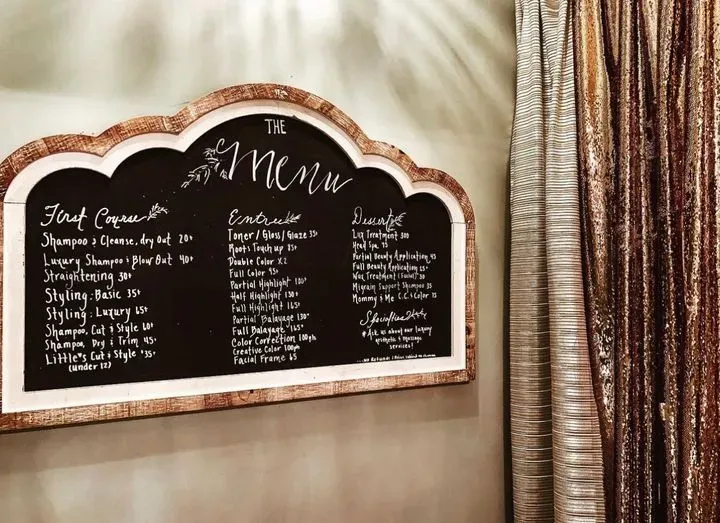 THE
Menu
First Course
Shampoo & Cleanse, dry out 20+
Luxury Shampoo & Blow Out 40+
Straightening 30+
Styling: Basic 35+
Styling: Luxury 65+
Shampoo, Cut & Style 60+
Shampoo, Dry & Trim 45+
Little's Cut & Style 35+
(under 12)
Entree
Toner / Gloss / Glaze 35+
Roots Touch up 85+
Double Color x2
Full Color 95+
Partial Highlight 100+
Half Highlight 130+
Full Highlight 165+
Partial Balayage 130+
Full Balayage 165+
Color Correction 100ph
Creative Color 100ph
Facial Frame 65
Dessert
Treatment 300
Head Spa 95
Partial Beauty Application 45
Full Beauty Application
Wax Treatment (Facial) 30
Migrain Support Shampoo 35
Mommy & Me C.C & Color 15
Specialties
Ask us about our luxury
aromatic & massage
services!
No Refunds